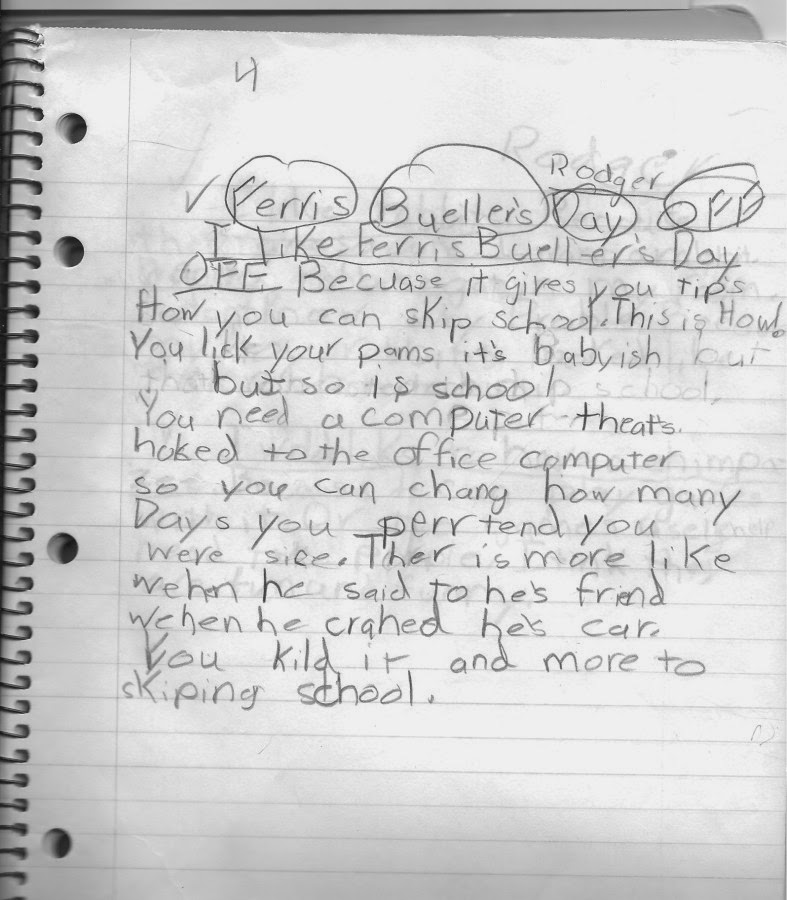 4
Rodger
✓ Ferris Bueller's Day OFF
I Like Ferris Bueller's Day
OFF Becuase it gives you tips
How you can skip school. This is How!
You lick your pams it's babyish but
but so is school
You need a computer theat's
hoked to the office computer
so you can chang how many
Days you perrtend you
were sice. Ther is more like
wehen he said to he's friend
wehen he crahed he's car.
You kild it and more to
skiping school.